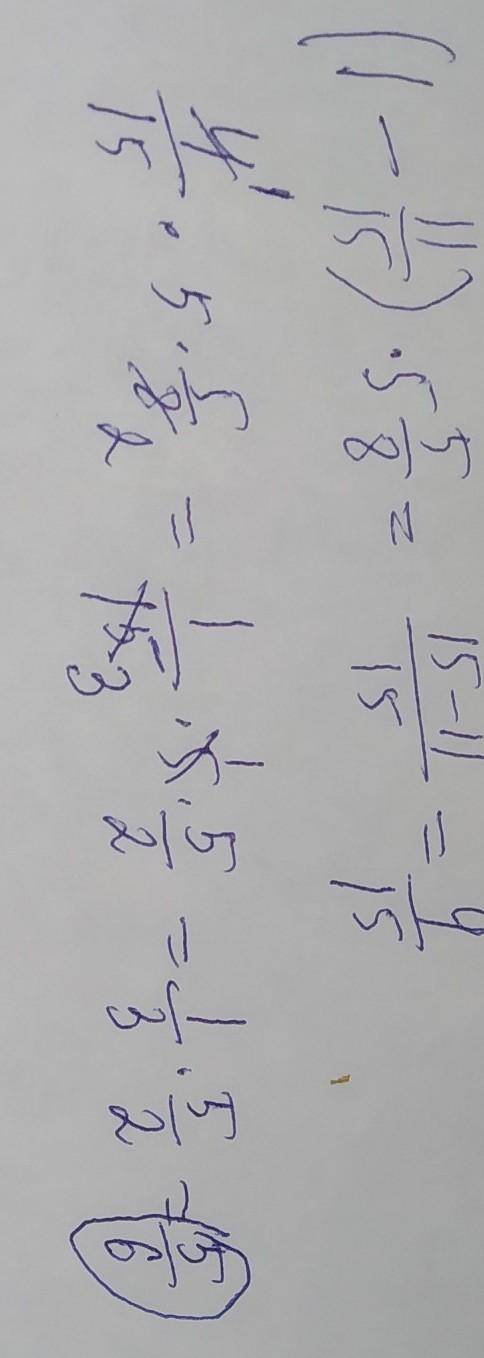 (1 - 11/15) · 5 5/8 = 15-11/15 = 4/15
4 1/15 · 5 · 5/8 2 = 1/15 3 · 5 1 · 5/2 = 1/3 · 5/2 = 5/6